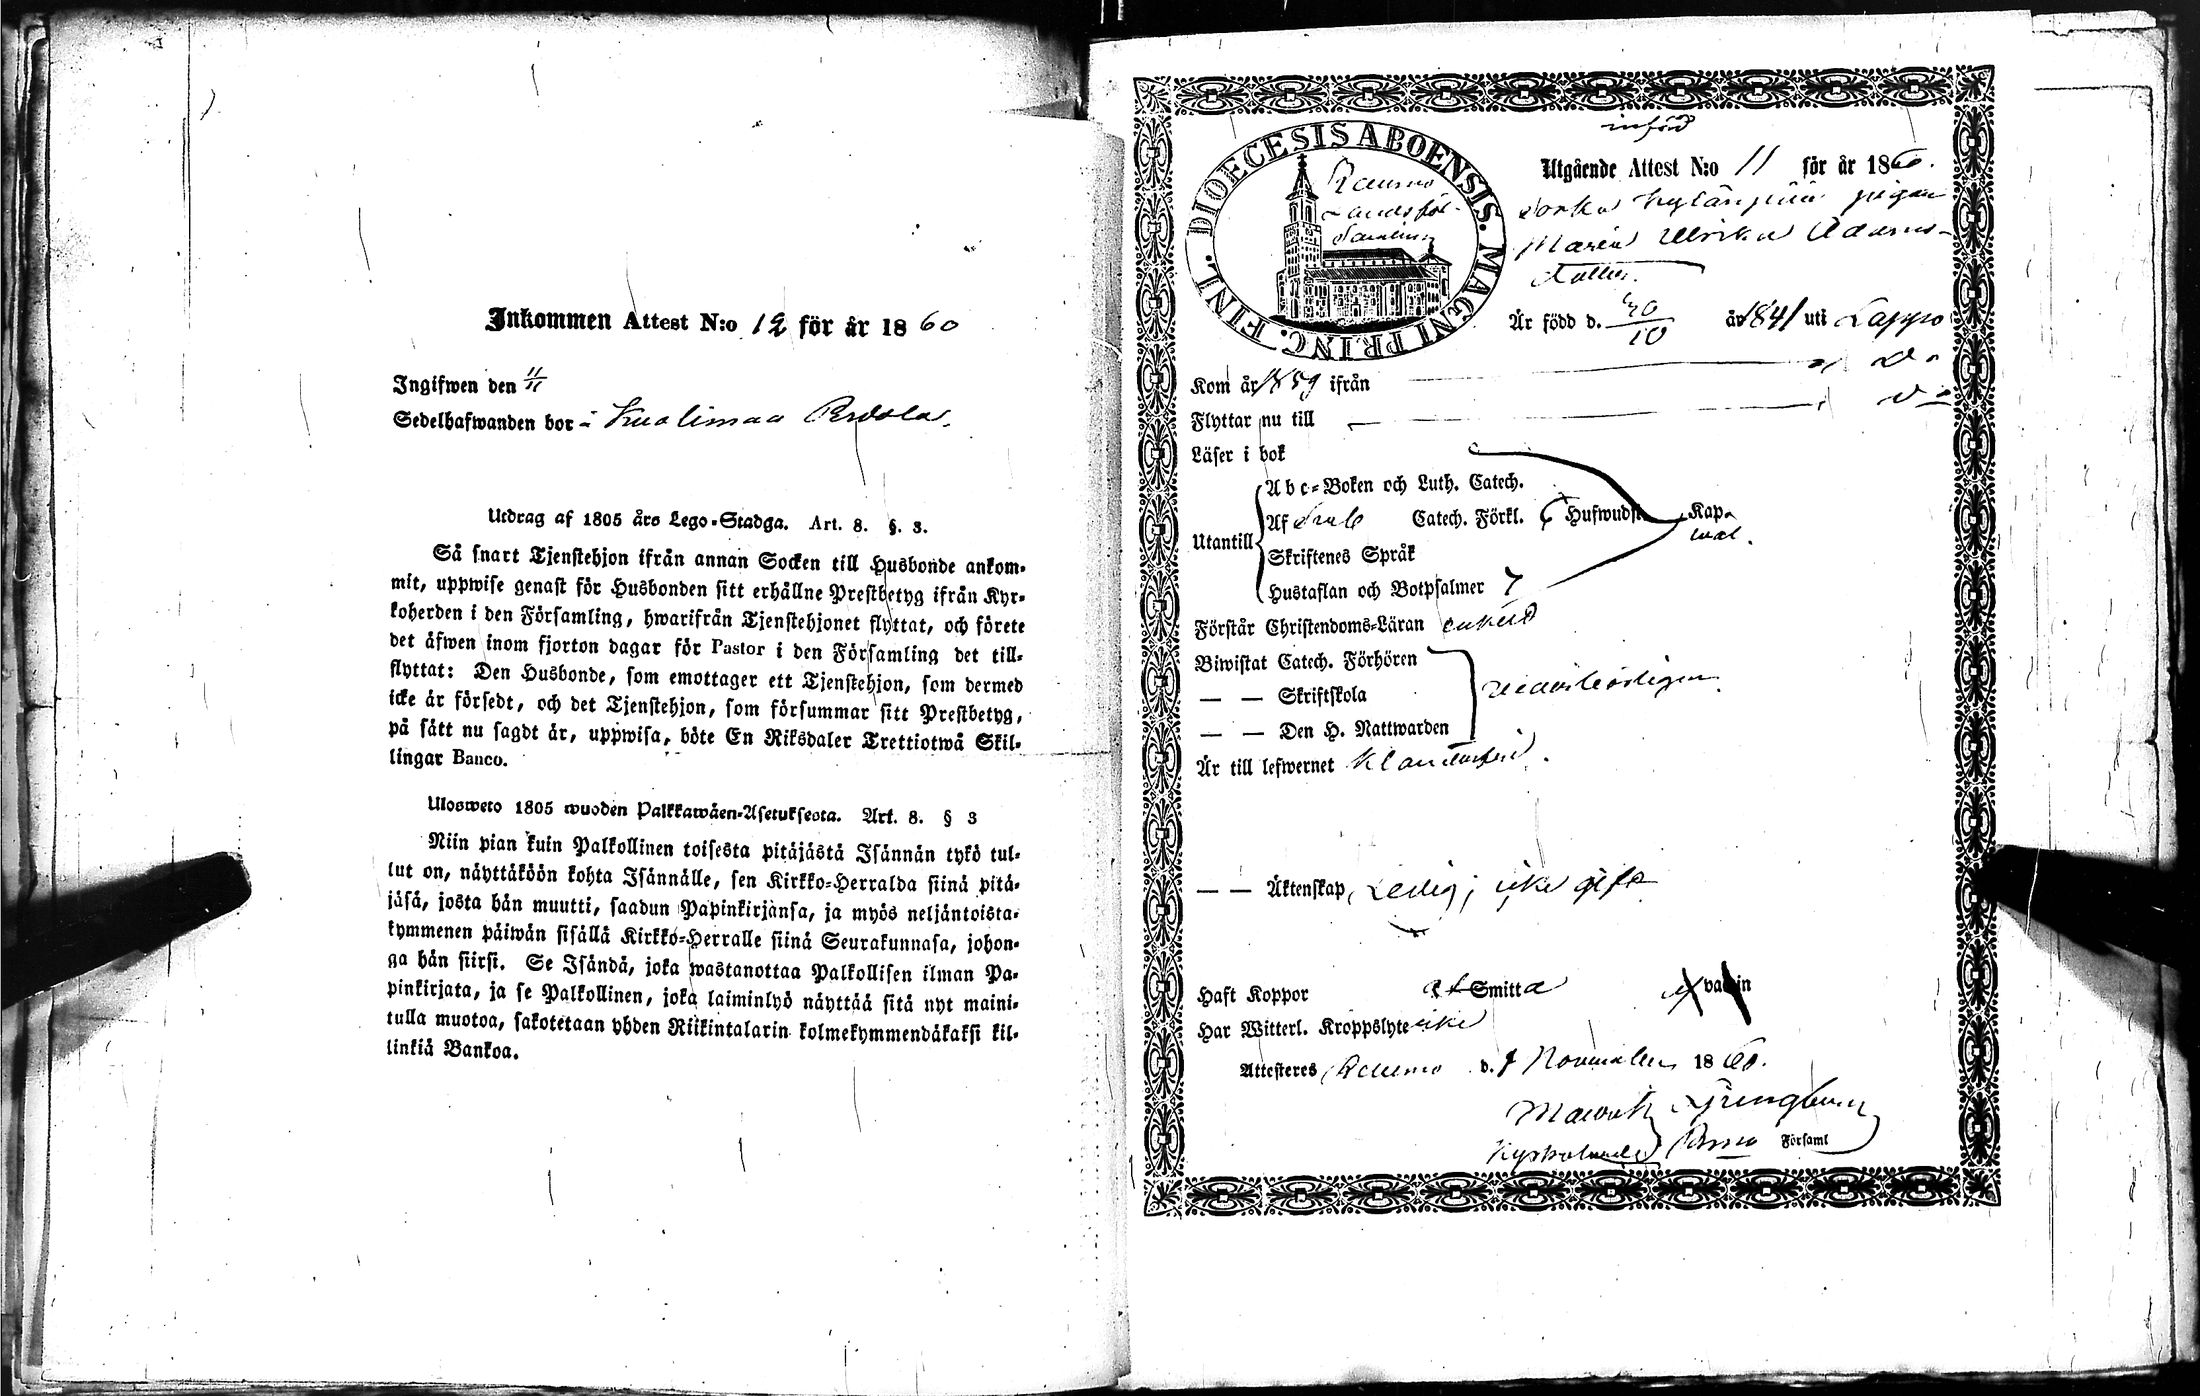 Inkommen Attest N:o 12 för år 1860
Ingifwen den 11/11
Sedelhafwanden bor i Kuolimaa
Utdrag af 1805 års Lego-Stadga. Art. 8. §. 3.
Så snart Tjenstehjon ifrån annan Socken till Husbonde ankom-
mit, uppwise genast för Husbonden sitt erhållne Prestbetyg ifrån Kyr-
koherden i den Församling, hwarifrån Tjenstehjonet flyttat, och förete
det äfwen inom fjorton dagar för Pastor i den Församling det till-
flyttat: Den Husbonde, som emottager ett Tjenstehjon, som dermed
icke är försedt, och det Tjenstehjon, som försummar sitt Prestbetyg,
på sätt nu sagdt är, uppwisa, böte En Riksdaler Trettiotwå Skil-
lingar Banco.
Ulosweto 1805 wuoden Palkkawäen-Asetuksesta. Art. 8. § 3
Niin pian kuin Palkollinen toisesta pitäjästä Isännän tykö tul-
lut on, näyttäköön kohta Isännälle, sen Kirkko-Herralda siinä pitä-
jäsä, josta hän muutti, saadun Papinkirjansa, ja myös neljäntoista-
kymmenen päiwän sisällä Kirkko-Herralle siinä Seurakunnasa, johon-
ga hän siirsi. Se Isändä, joka wastanottaa Palkollisen ilman Pa-
pinkirjata, ja se Palkollinen, joka laiminlyö näyttää sitä nyt maini-
tulla muotoa, sakotetaan yhden Riikintalarin kolmekymmendäkaksi kil-
linkiä Bankoa.
införd
DIOECESIS ABOENSIS. MAGNI PRINC. FINL.
Raumo
Landsför-
samling
Utgående Attest N:o 11 för år 1860.
pigan
Maria Ulrika Adams-
dotter.
Är född d. 30/10 år 1841 uti Lappo
Kom år 1859 ifrån D:o
Flyttar nu till D:o
Läser i bok
Utantill
Abc-Boken och Luth. Catech.
Af Catech. Förkl. 6 Hufwudst. Kap.
Skriftenes Språk
Hustaflan och Botpsalmer 7
Förstår Christendoms-Läran enkelt
Biwistat Catech. Förhören
— — Skriftskola
— — Den H. Nattwarden
wederbörligen.
Är till lefwernet klanderfri.
— — Äktenskap, Ledig; icke gift
Haft Koppor af Smitta vaccin
Har Witterl. Kroppslyte icke
Attesteres Raumo d. 9 November 1860.
Kyrkoherde Församl